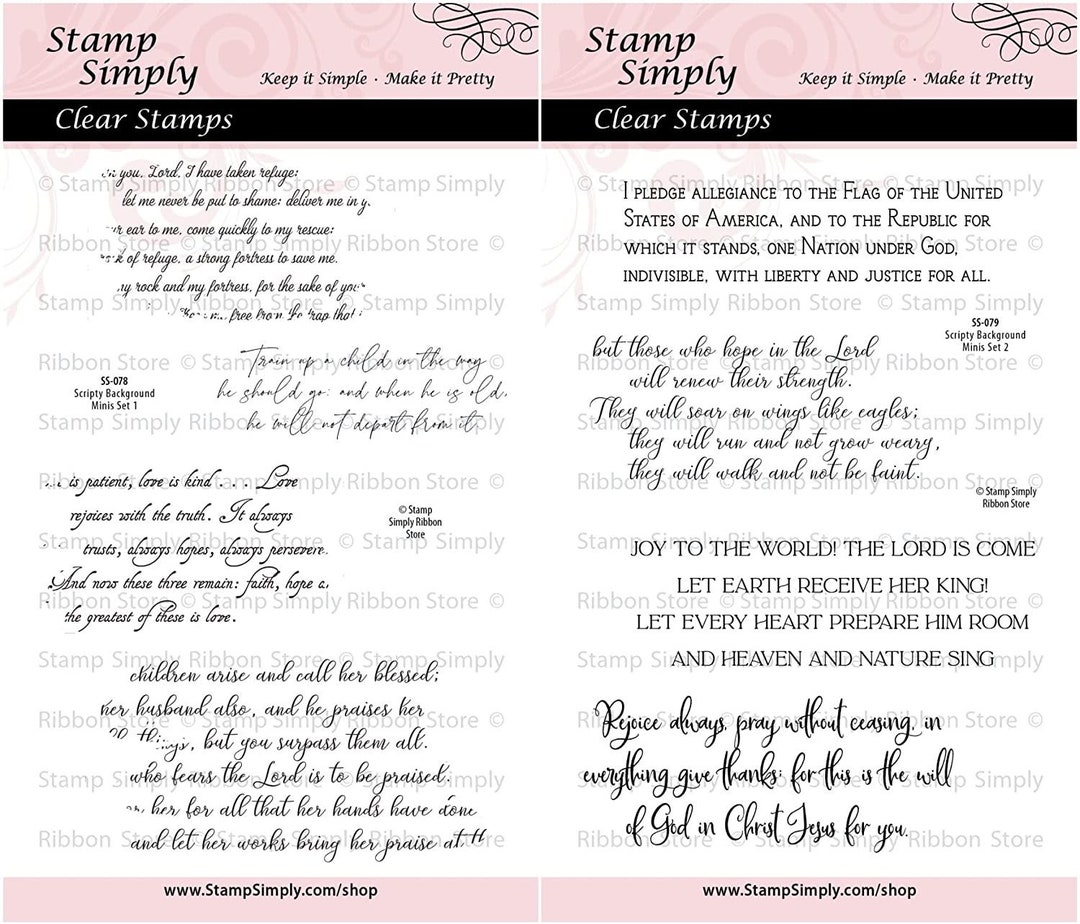 Stamp
Simply
Keep it Simple · Make it Pretty
Clear Stamps
you, Lord, I have taken refuge;
let me never be put to shame; deliver me in y
ear to me, come quickly to my rescue;
of refuge, a strong fortress to save me.
y rock and my fortress, for the sake of you
free from trap that
Train up a child in the way
he should go: and when he is old,
he will not depart from it.
SS-078
Scripty Background
Minis Set 1
is patient, love is kind . . . Love
rejoices with the truth. It always
trusts, always hopes, always persevere
And now these three remain: faith, hope a
the greatest of these is love.
© Stamp
Simply Ribbon
Store
children arise and call her blessed;
her husband also, and he praises her
things, but you surpass them all.
who fears the Lord is to be praised.
her for all that her hands have done
and let her works bring her praise at th
www.StampSimply.com/shop
Stamp
Simply
Keep it Simple · Make it Pretty
Clear Stamps
I pledge allegiance to the Flag of the United
States of America, and to the Republic for
which it stands, one Nation under God,
indivisible, with liberty and justice for all.
SS-079
Scripty Background
Minis Set 2
but those who hope in the Lord
will renew their strength.
They will soar on wings like eagles;
they will run and not grow weary,
they will walk and not be faint.
© Stamp Simply
Ribbon Store
JOY TO THE WORLD! THE LORD IS COME
LET EARTH RECEIVE HER KING!
LET EVERY HEART PREPARE HIM ROOM
AND HEAVEN AND NATURE SING
Rejoice always, pray without ceasing, in
everything give thanks; for this is the will
of God in Christ Jesus for you.
www.StampSimply.com/shop